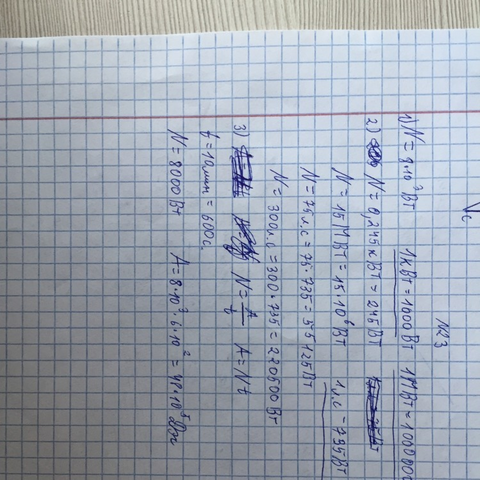 №3
1) N = 9·10³ Вт 1кВт = 1000Вт 1МВт = 1000000
2) N = 0,245кВт = 245Вт
N = 15 МВт = 15·10⁶ Вт 1л.с = 735Вт
N = 75л.с = 75·735 = 55125Вт
N = 300л.с = 300·735 = 220500Вт
3) N = A/t A = Nt
t = 10мин = 600с.
N = 8000Вт A = 8·10³·6·10² = 48·10⁵Дж